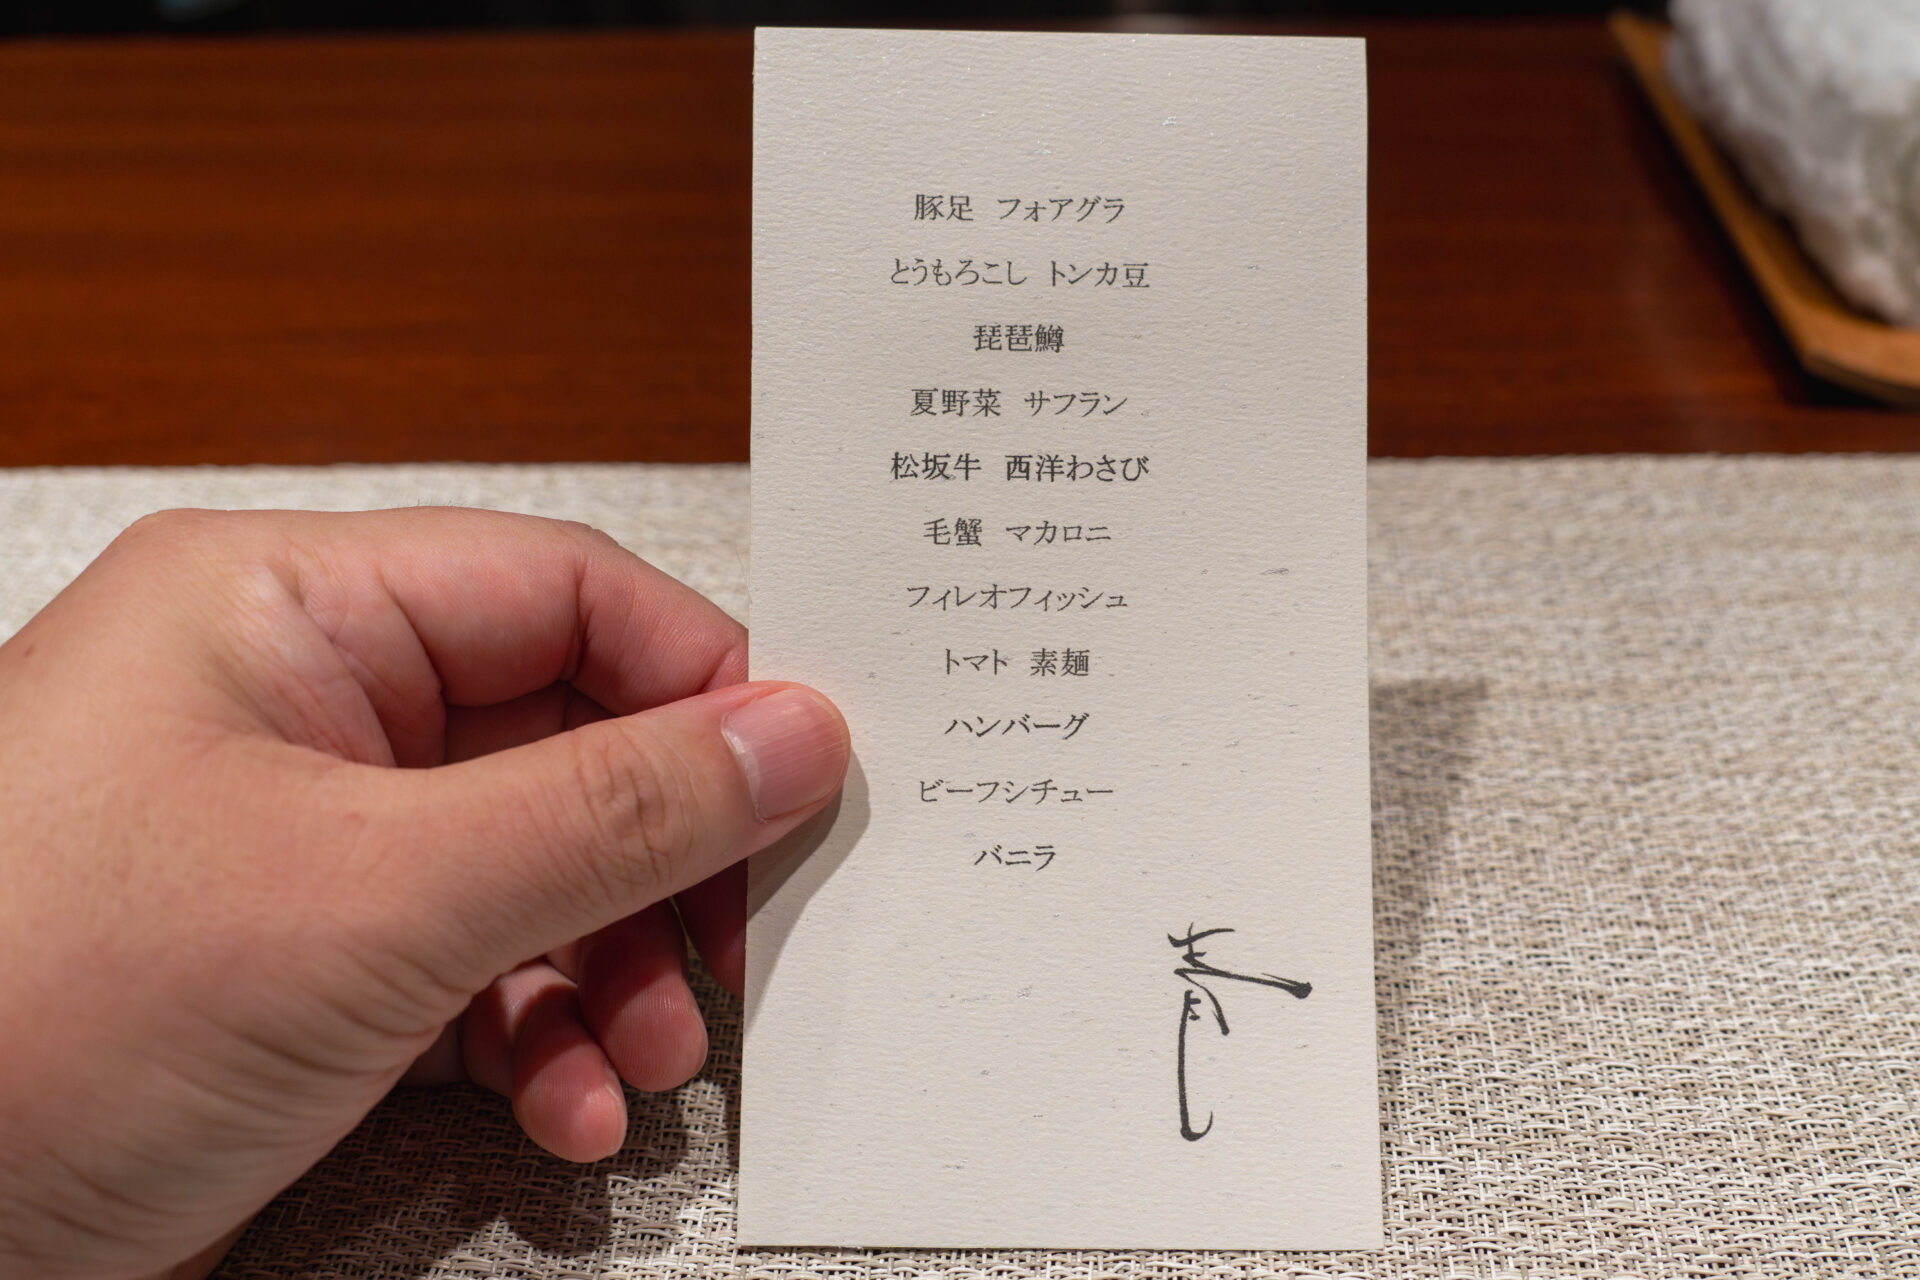 豚足 フォアグラ
とうもろこし トンカ豆
琵琶鱒
夏野菜 サフラン
松坂牛 西洋わさび
毛蟹 マカロニ
フィレオフィッシュ
トマト 素麺
ハンバーグ
ビーフシチュー
バニラ